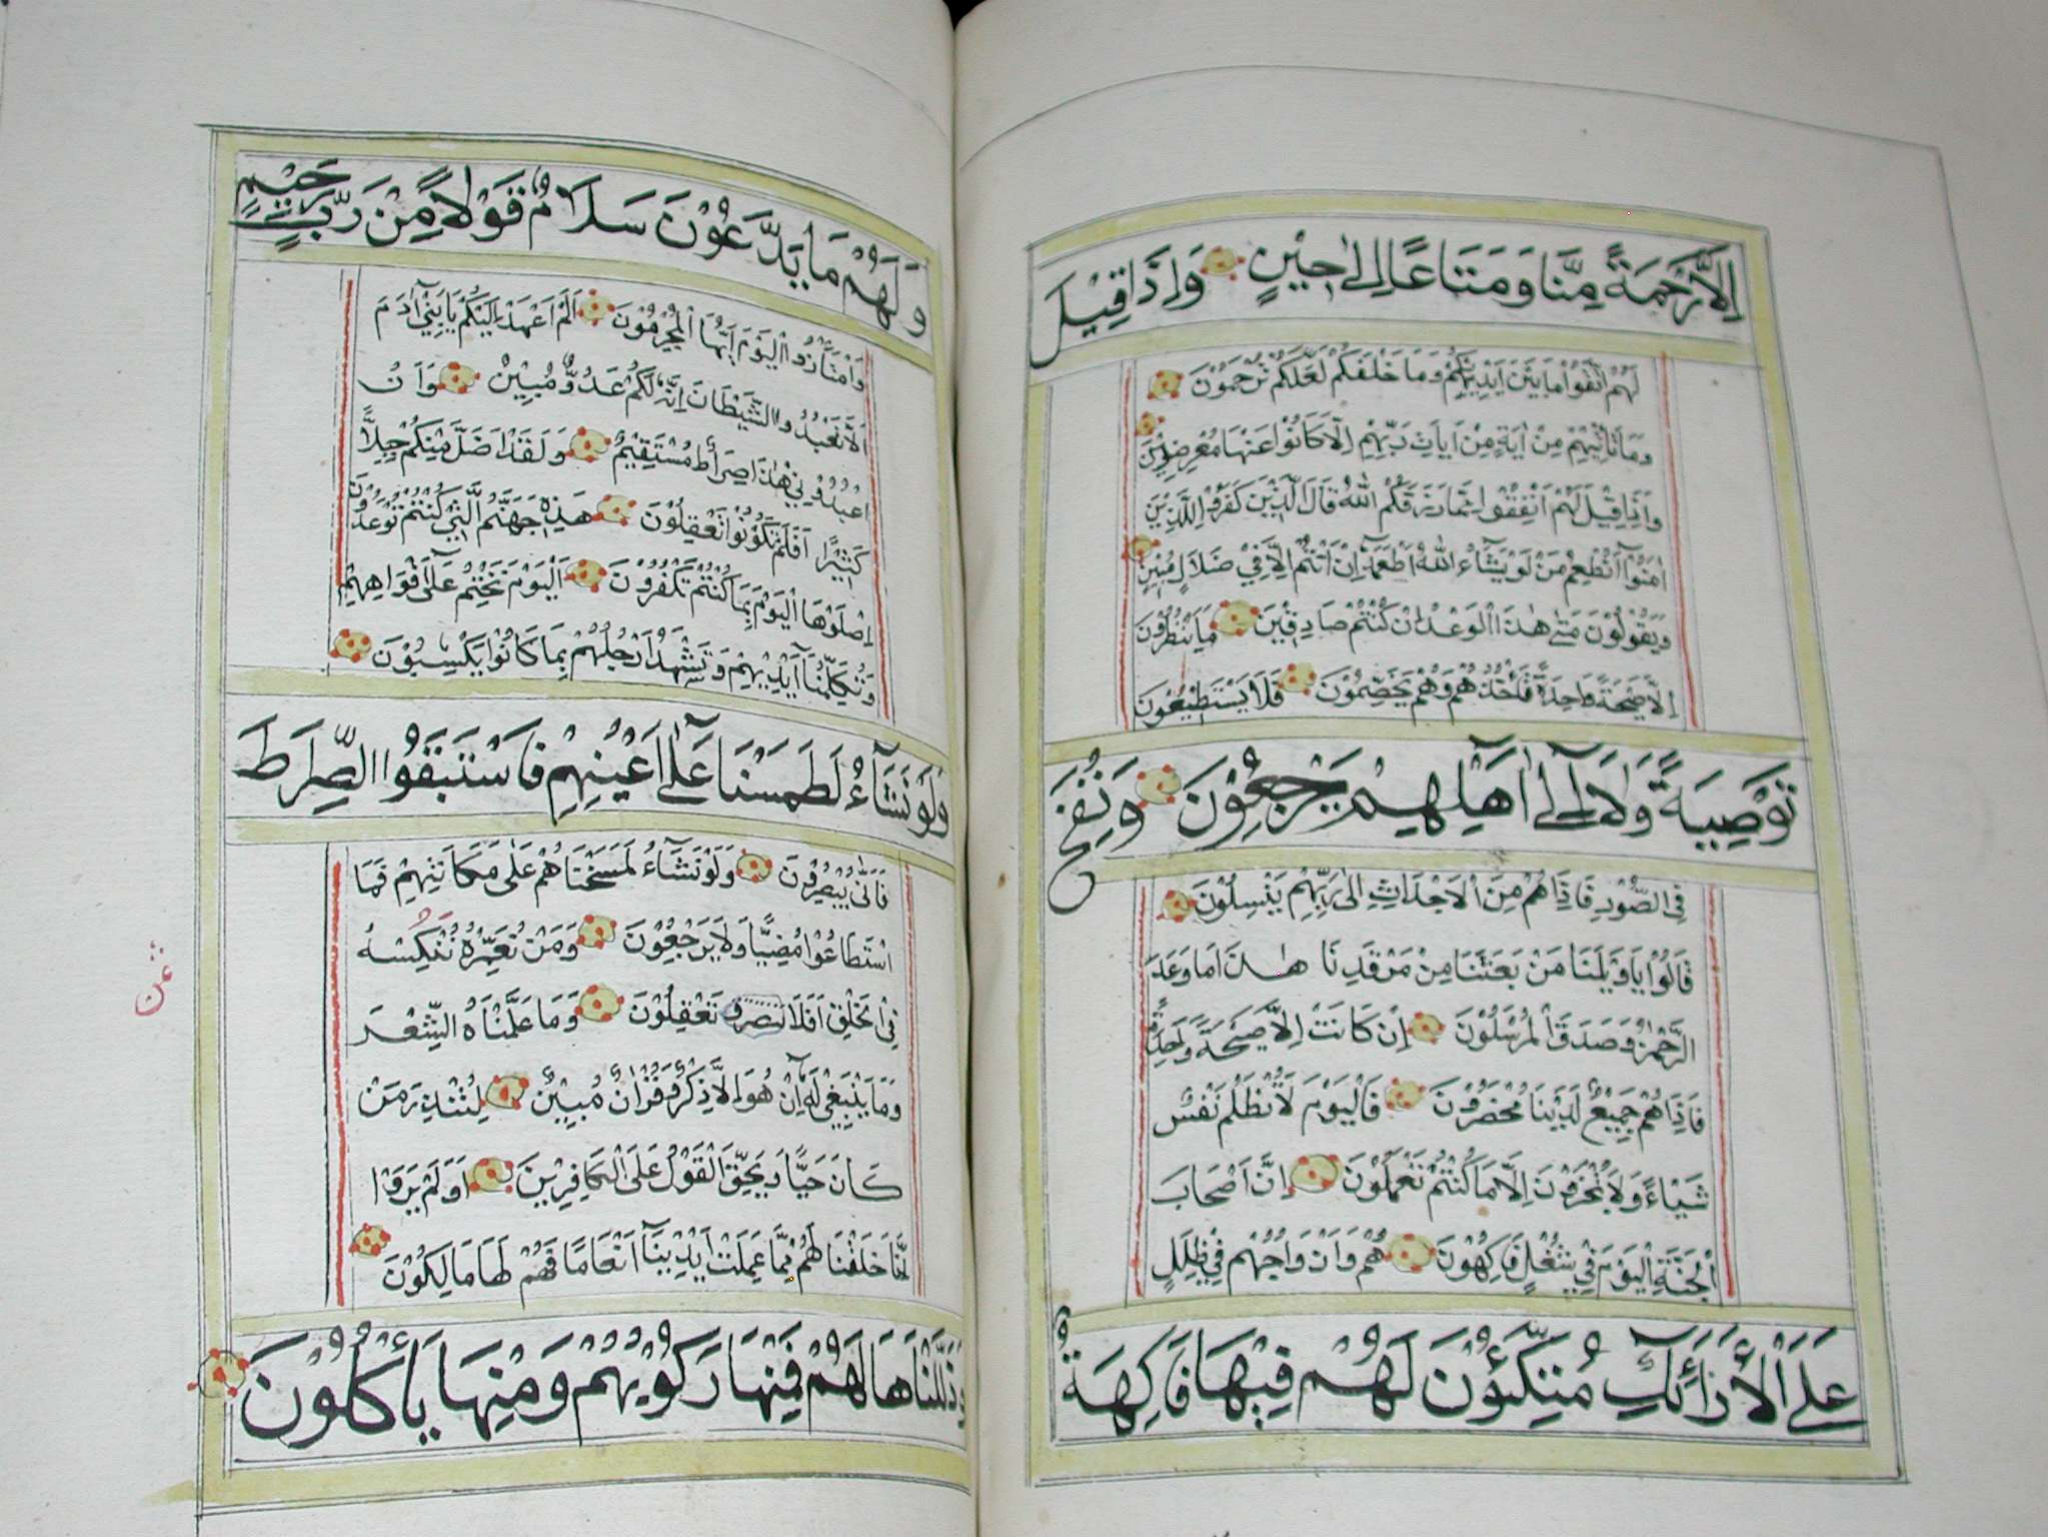 اِلاَّ رَحْمَةً مِنَّا وَمَتَاعًا اِلٰى حِيْنٍ وَاِذَا قِيْلَ
لَهُمُ اتَّقُوْا مَا بَيْنَ اَيْدِيْكُمْ وَمَا خَلْفَكُمْ لَعَلَّكُمْ تُرْحَمُوْنَ
وَمَا تَأْتِيْهِمْ مِنْ اٰيَةٍ مِنْ اٰيَاتِ رَبِّهِمْ اِلَّا كَانُوْا عَنْهَا مُعْرِضِيْنَ
وَاِذَا قِيْلَ لَهُمْ اَنْفِقُوْا مِمَّا رَزَقَكُمُ اللّٰهُ قَالَ الَّذِيْنَ كَفَرُوْا لِلَّذِيْنَ
اٰمَنُوْا اَنُطْعِمُ مَنْ لَوْ يَشَاءُ اللّٰهُ اَطْعَمَهُ اِنْ اَنْتُمْ اِلَّا فِيْ ضَلَالٍ مُبِيْنٍ
وَيَقُوْلُوْنَ مَتٰى هٰذَا الْوَعْدُ اِنْ كُنْتُمْ صَادِقِيْنَ مَا يَنْظُرُوْنَ
اِلَّا صَيْحَةً وَاحِدَةً تَأْخُذُهُمْ وَهُمْ يَخِصِّمُوْنَ فَلَا يَسْتَطِيْعُوْنَ
تَوْصِيَةً وَلَا اِلٰى اَهْلِهِمْ يَرْجِعُوْنَ وَنُفِخَ
فِي الصُّوْرِ فَاِذَا هُمْ مِنَ الْاَجْدَاثِ اِلٰى رَبِّهِمْ يَنْسِلُوْنَ
قَالُوْا يَا وَيْلَنَا مَنْ بَعَثَنَا مِنْ مَرْقَدِنَا هٰذَا مَا وَعَدَ
الرَّحْمٰنُ وَصَدَقَ الْمُرْسَلُوْنَ اِنْ كَانَتْ اِلَّا صَيْحَةً وَاحِدَةً
فَاِذَا هُمْ جَمِيْعٌ لَدَيْنَا مُحْضَرُوْنَ فَالْيَوْمَ لَا تُظْلَمُ نَفْسٌ
شَيْاءً وَلَا تُجْزَوْنَ اِلَّا مَا كُنْتُمْ تَعْمَلُوْنَ اِنَّ اَصْحَابَ
الْجَنَّةِ الْيَوْمَ فِيْ شُغُلٍ فَاكِهُوْنَ هُمْ وَاَزْوَاجُهُمْ فِيْ ظِلَلٍ
عَلَى الْاَرَائِكِ مُتَّكِئُوْنَ لَهُمْ فِيْهَا فَاكِهَةٌ
وَلَهُمْ مَا يَدَّعُوْنَ سَلَامٌ قَوْلًا مِنْ رَبٍّ رَحِيْمٍ
وَامْتَازُوا الْيَوْمَ اَيُّهَا الْمُجْرِمُوْنَ اَلَمْ اَعْهَدْ اِلَيْكُمْ يَا بَنِيْ اٰدَمَ
اَلَّا تَعْبُدُوا الشَّيْطَانَ اِنَّهُ لَكُمْ عَدُوٌّ مُبِيْنٌ وَاَنِ
اعْبُدُوْنِيْ هٰذَا صِرَاطٌ مُسْتَقِيْمٌ وَلَقَدْ اَضَلَّ مِنْكُمْ جِبِلًّا
كَثِيْرًا اَفَلَمْ تَكُوْنُوْا تَعْقِلُوْنَ هٰذِهٖ جَهَنَّمُ الَّتِيْ كُنْتُمْ تُوْعَدُوْنَ
اِصْلَوْهَا الْيَوْمَ بِمَا كُنْتُمْ تَكْفُرُوْنَ اَلْيَوْمَ نَخْتِمُ عَلٰى اَفْوَاهِهِمْ
وَتُكَلِّمُنَا اَيْدِيْهِمْ وَتَشْهَدُ اَرْجُلُهُمْ بِمَا كَانُوْا يَكْسِبُوْنَ
وَلَوْ نَشَاءُ لَطَمَسْنَا عَلٰى اَعْيُنِهِمْ فَاسْتَبَقُوا الصِّرَاطَ
فَاَنّٰى يُبْصِرُوْنَ وَلَوْ نَشَاءُ لَمَسَخْنَاهُمْ عَلٰى مَكَانَتِهِمْ فَمَا
اسْتَطَاعُوْا مُضِيًّا وَلَا يَرْجِعُوْنَ وَمَنْ نُعَمِّرْهُ نُنَكِّسْهُ
فِي الْخَلْقِ اَفَلَا تَعْقِلُوْنَ وَمَا عَلَّمْنَاهُ الشِّعْرَ
وَمَا يَنْبَغِيْ لَهُ اِنْ هُوَ اِلَّا ذِكْرٌ وَقُرْاٰنٌ مُبِيْنٌ لِتُنْذِرَ مَنْ
كَانَ حَيًّا وَيَحِقَّ الْقَوْلُ عَلَى الْكَافِرِيْنَ اَوَلَمْ يَرَوْا
اَنَّا خَلَقْنَا لَهُمْ مِمَّا عَمِلَتْ اَيْدِيْنَا اَنْعَامًا فَهُمْ لَهَا مَالِكُوْنَ
وَذَلَّلْنَاهَا لَهُمْ فَمِنْهَا رَكُوْبُهُمْ وَمِنْهَا يَأْكُلُوْنَ
ثمن